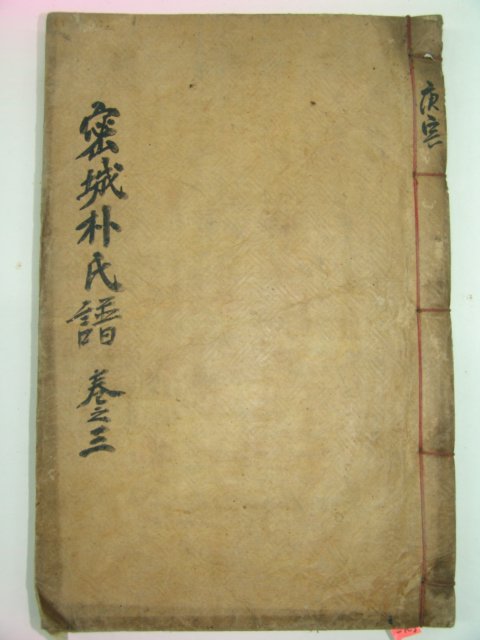 庚寅
密城朴氏譜 卷之三